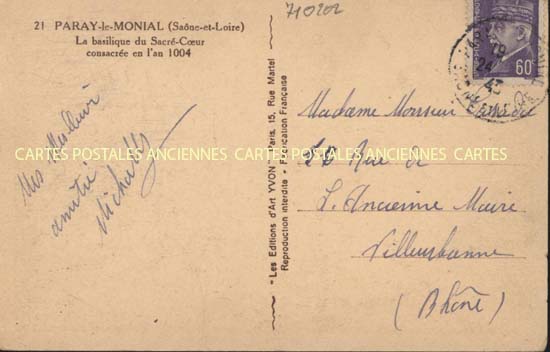 21 PARAY-le-MONIAL (Saône-et-Loire)
La basilique du Sacré-Cœur
consacrée en l'an 1004
710202
amitié
"Les Editions d'Art YVON" Paris, 15, Rue Martel
Reproduction interdite - Fabrication Française
60
Madame Monsieur
28 Rue de
L'Ancienne Mairie
Villeurbanne
(Rhône)
CARTES POSTALES ANCIENNES CARTES POSTALES ANCIENNES CARTES POSTALES ANCIENNES